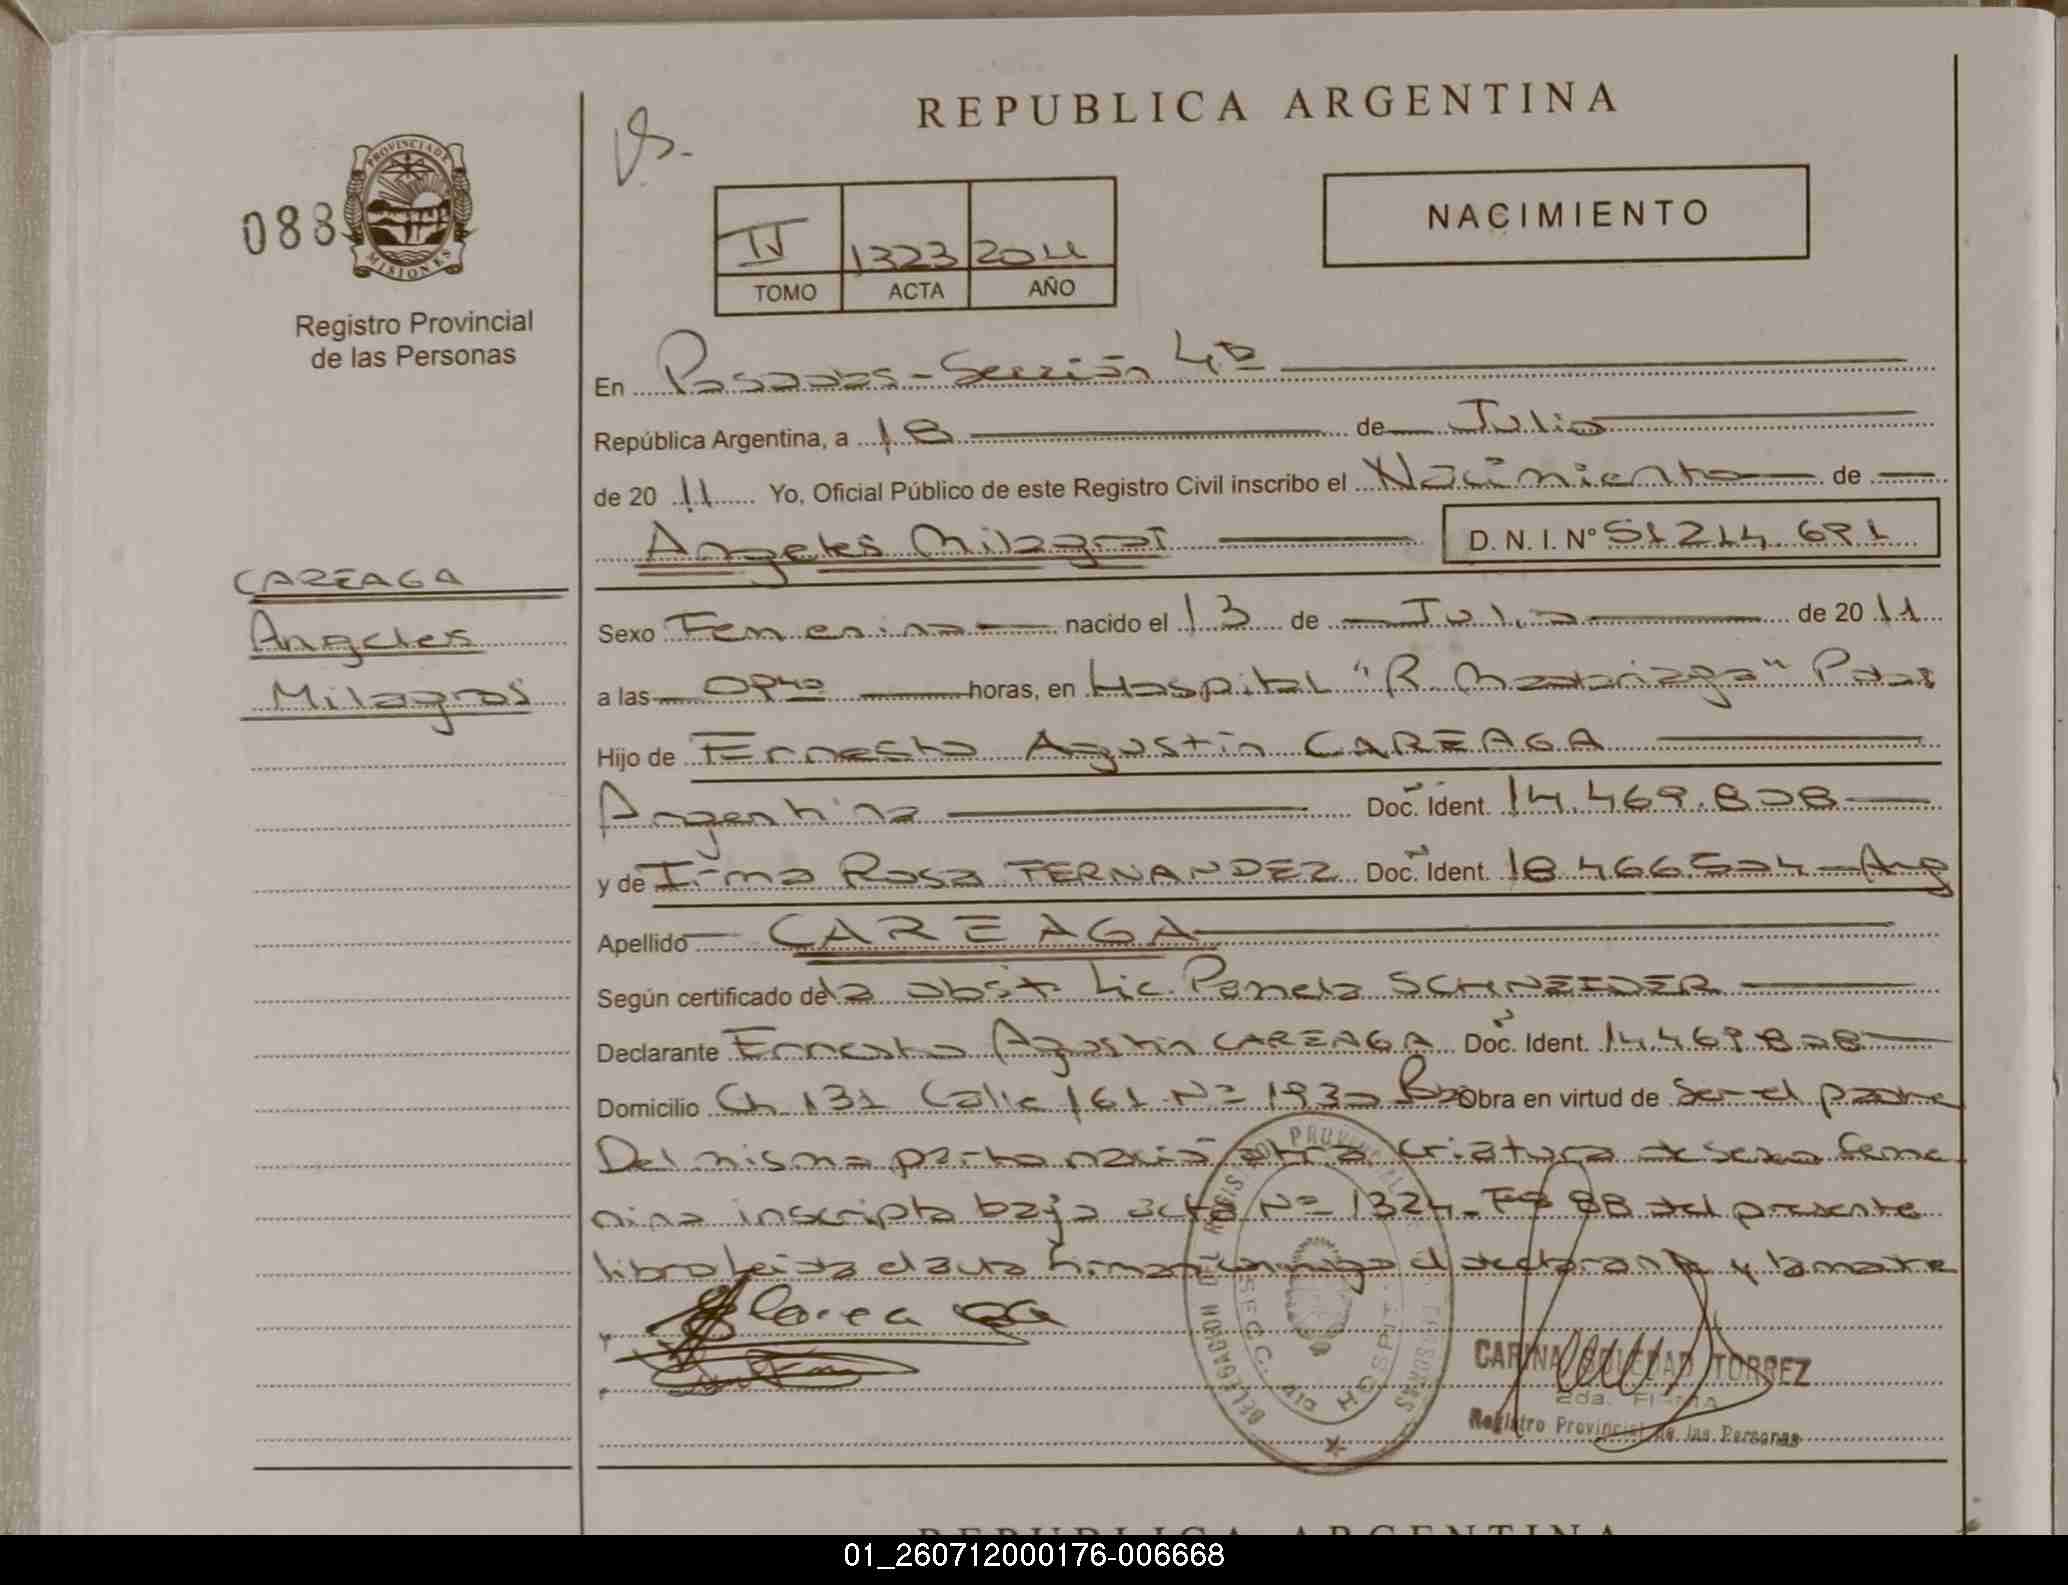 REPUBLICA ARGENTINA
088
PROVINCIA DE
MISIONES
Registro Provincial
de las Personas
NACIMIENTO
IV 1323 2011
TOMO ACTA AÑO
En Posadas - Sección 4ª
República Argentina, a 18 de Julio
de 2011 Yo, Oficial Público de este Registro Civil inscribo el Nacimiento de
Angeles Milagros D. N. I. Nº 51 214. 691
CAREAGA
Angeles
Milagros
Sexo Femenino nacido el 13 de Julio de 2011
a las horas, en Hospital "R. Madariaga" Pdas
Hijo de Ernesto Agustin CAREAGA
Argentina Doc. Ident. 14.469.808
y de Irma Rosa FERNANDEZ Doc. Ident. 18.466.504 - Arg
Apellido CAREAGA
Según certificado de la obst. Lic. Pamela SCHNEIDER
Declarante Ernesto Agustin CAREAGA Doc. Ident. 14.469.808
Domicilio Ch 131 Calle 161 Nº 1930 Obra en virtud de ser el padre
Del mismo parto nació otra criatura de sexo feme
nino inscripta bajo acta Nº 1324 - Fº 88 del presente
libro leida el acta firman conmigo el declarante y la madre
CARINA SOLEDAD TORREZ
2da. FIRMA
Registro Provincial de las Personas
01_260712000176-006668